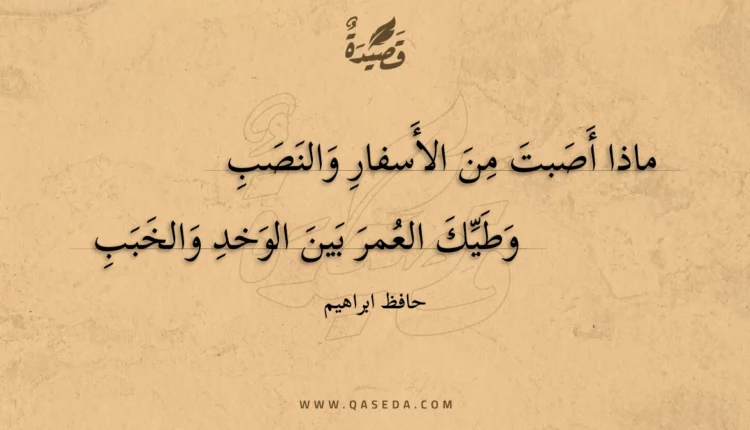 قَصِيْدَةٌ
ماذا أَصَبتَ مِنَ الأَسفارِ وَالنَصَبِ
وَطَيِّكَ العُمرَ بَينَ الوَخدِ وَالخَبَبِ
حافظ ابراهيم
WWW.QASEDA.COM